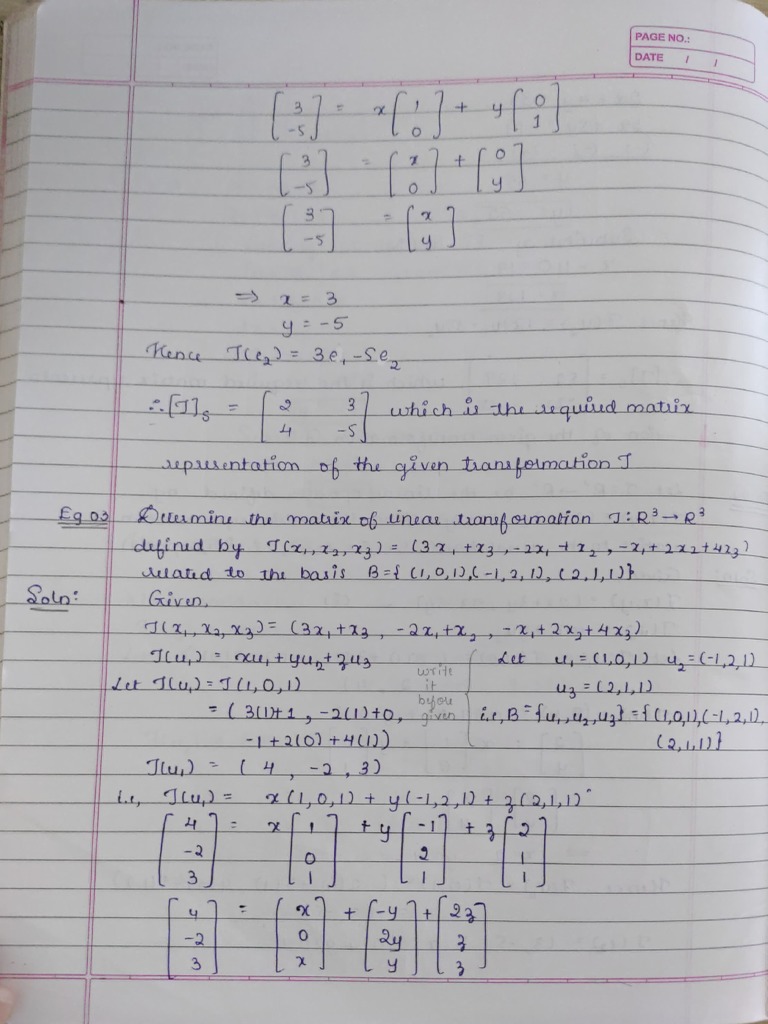 PAGE NO.:
DATE / /
[3 -5] = x [1 0] + y [0 1]
[3 -5] = [x 0] + [0 y]
[3 -5] = [x y]
⇒ x = 3
y = -5
Hence T(e₂) = 3e₁ - 5e₂
∴ [T]s = [2 3 4 -5] which is the required matrix
representation of the given transformation T
Eg 03 Determine the matrix of linear transformation T: R³ → R³
defined by T(x₁, x₂, x₃) = (3x₁ + x₃, -2x₁ + x₂, -x₁ + 2x₂ + 4x₃)
related to the basis B = { (1,0,1), (-1,2,1), (2,1,1)}
Soln: Given,
T(x₁, x₂, x₃) = (3x₁ + x₃, -2x₁ + x₂, -x₁ + 2x₂ + 4x₃)
T(u₁) = xu₁ + yu₂ + zu₃
Let u₁ = (1,0,1) u₂ = (-1,2,1)
u₃ = (2,1,1)
i.e, B = {u₁, u₂, u₃} = {(1,0,1), (-1,2,1),
(2,1,1)}
write
it
before
given
Let T(u₁) = T(1,0,1)
= (3(1)+1, -2(1)+0,
-1+2(0)+4(1))
T(u₁) = (4, -2, 3)
i.e, T(u₁) = x(1,0,1) + y(-1,2,1) + z(2,1,1)
[4 -2 3] = x [1 0 1] + y [-1 2 1] + z [2 1 1]
[4 -2 3] = [x 0 x] + [-y 2y y] + [2z z z]